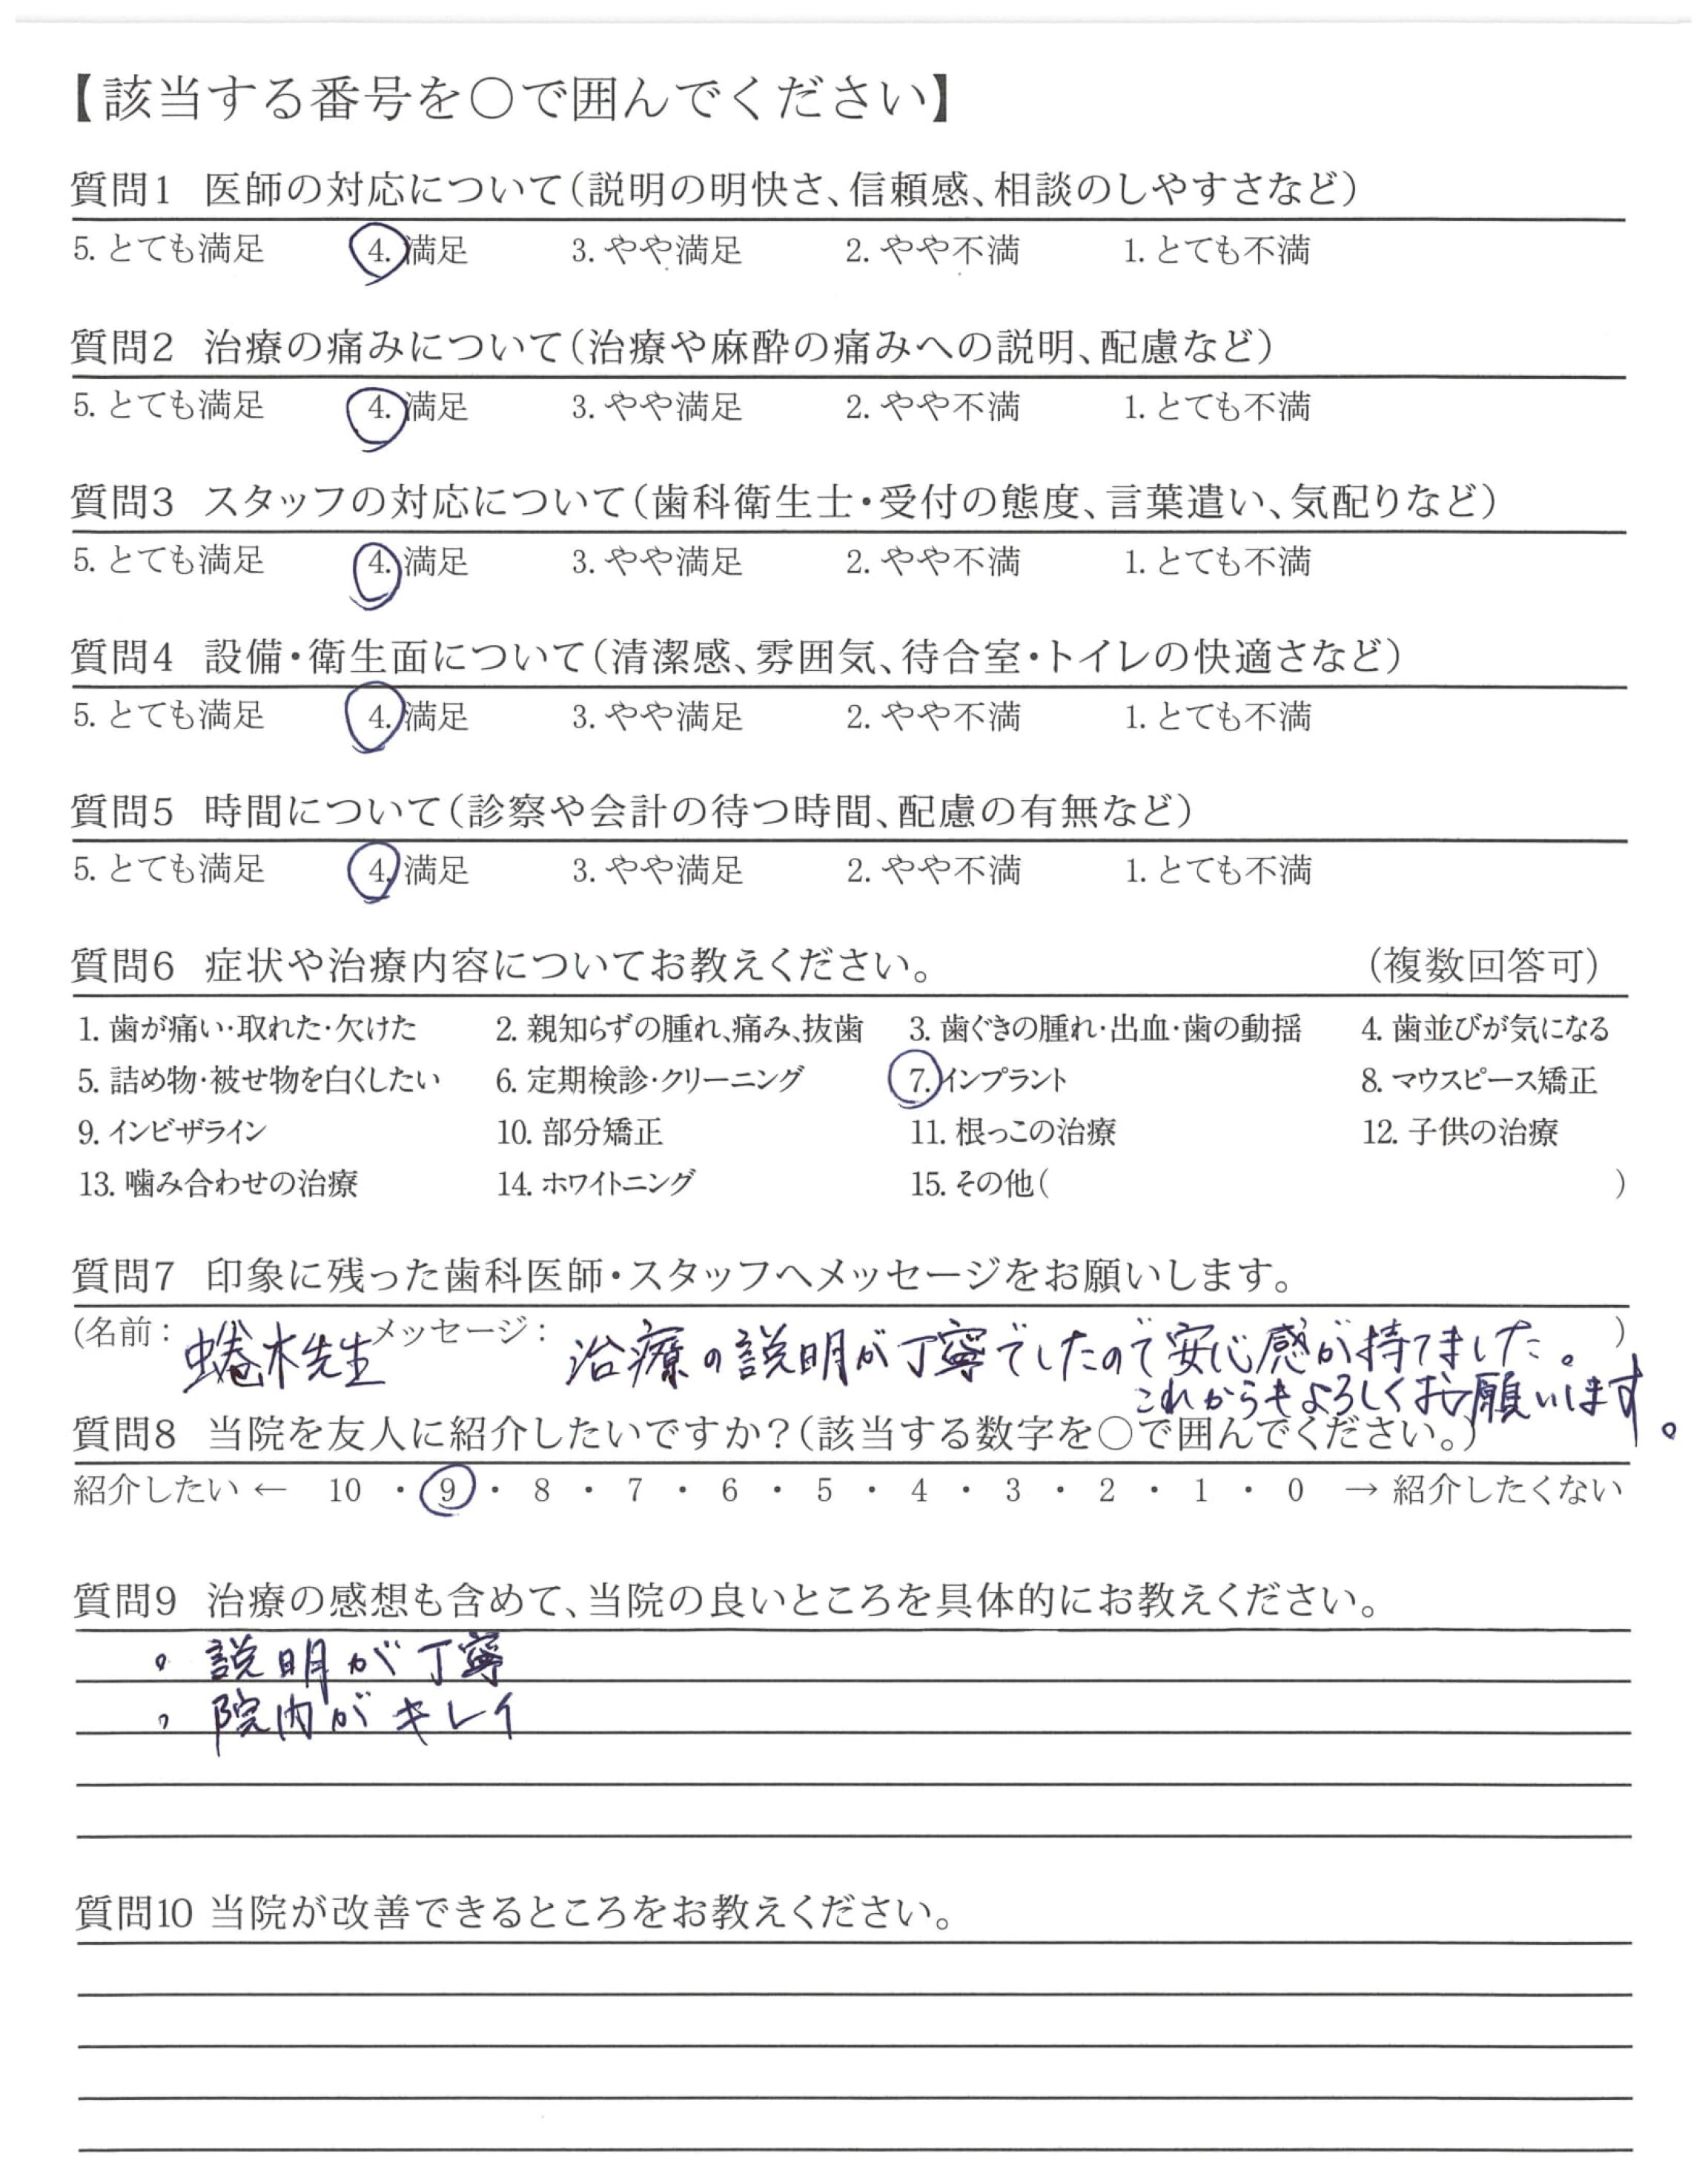 【該当する番号を○で囲んでください】
質問1 医師の対応について(説明の明快さ、信頼感、相談のしやすさなど)
5. とても満足 4. 満足 3. やや満足 2. やや不満 1. とても不満
質問2 治療の痛みについて(治療や麻酔の痛みへの説明、配慮など)
5. とても満足 4. 満足 3. やや満足 2. やや不満 1. とても不満
質問3 スタッフの対応について(歯科衛生士・受付の態度、言葉遣い、気配りなど)
5. とても満足 4. 満足 3. やや満足 2. やや不満 1. とても不満
質問4 設備・衛生面について(清潔感、雰囲気、待合室・トイレの快適さなど)
5. とても満足 4. 満足 3. やや満足 2. やや不満 1. とても不満
質問5 時間について(診察や会計の待つ時間、配慮の有無など)
5. とても満足 4. 満足 3. やや満足 2. やや不満 1. とても不満
質問6 症状や治療内容についてお教えください。 (複数回答可)
1. 歯が痛い・取れた・欠けた 2. 親知らずの腫れ、痛み、抜歯 3. 歯ぐきの腫れ・出血・歯の動揺 4. 歯並びが気になる
5. 詰め物・被せ物を白くしたい 6. 定期検診・クリーニング 7. インプラント 8. マウスピース矯正
9. インビザライン 10. 部分矯正 11. 根っこの治療 12. 子供の治療
13. 噛み合わせの治療 14. ホワイトニング 15. その他( )
質問7 印象に残った歯科医師・スタッフへメッセージをお願いします。
(名前: 木先生 メッセージ: 治療の説明が丁寧でしたので安心感が持てました。 )
これからもよろしくお願いします。
質問8 当院を友人に紹介したいですか?(該当する数字を○で囲んでください。)
紹介したい ← 10 ・ 9 ・ 8 ・ 7 ・ 6 ・ 5 ・ 4 ・ 3 ・ 2 ・ 1 ・ 0 → 紹介したくない
質問9 治療の感想も含めて、当院の良いところを具体的にお教えください。
。説明が丁寧
。院内がキレイ
質問10 当院が改善できるところをお教えください。